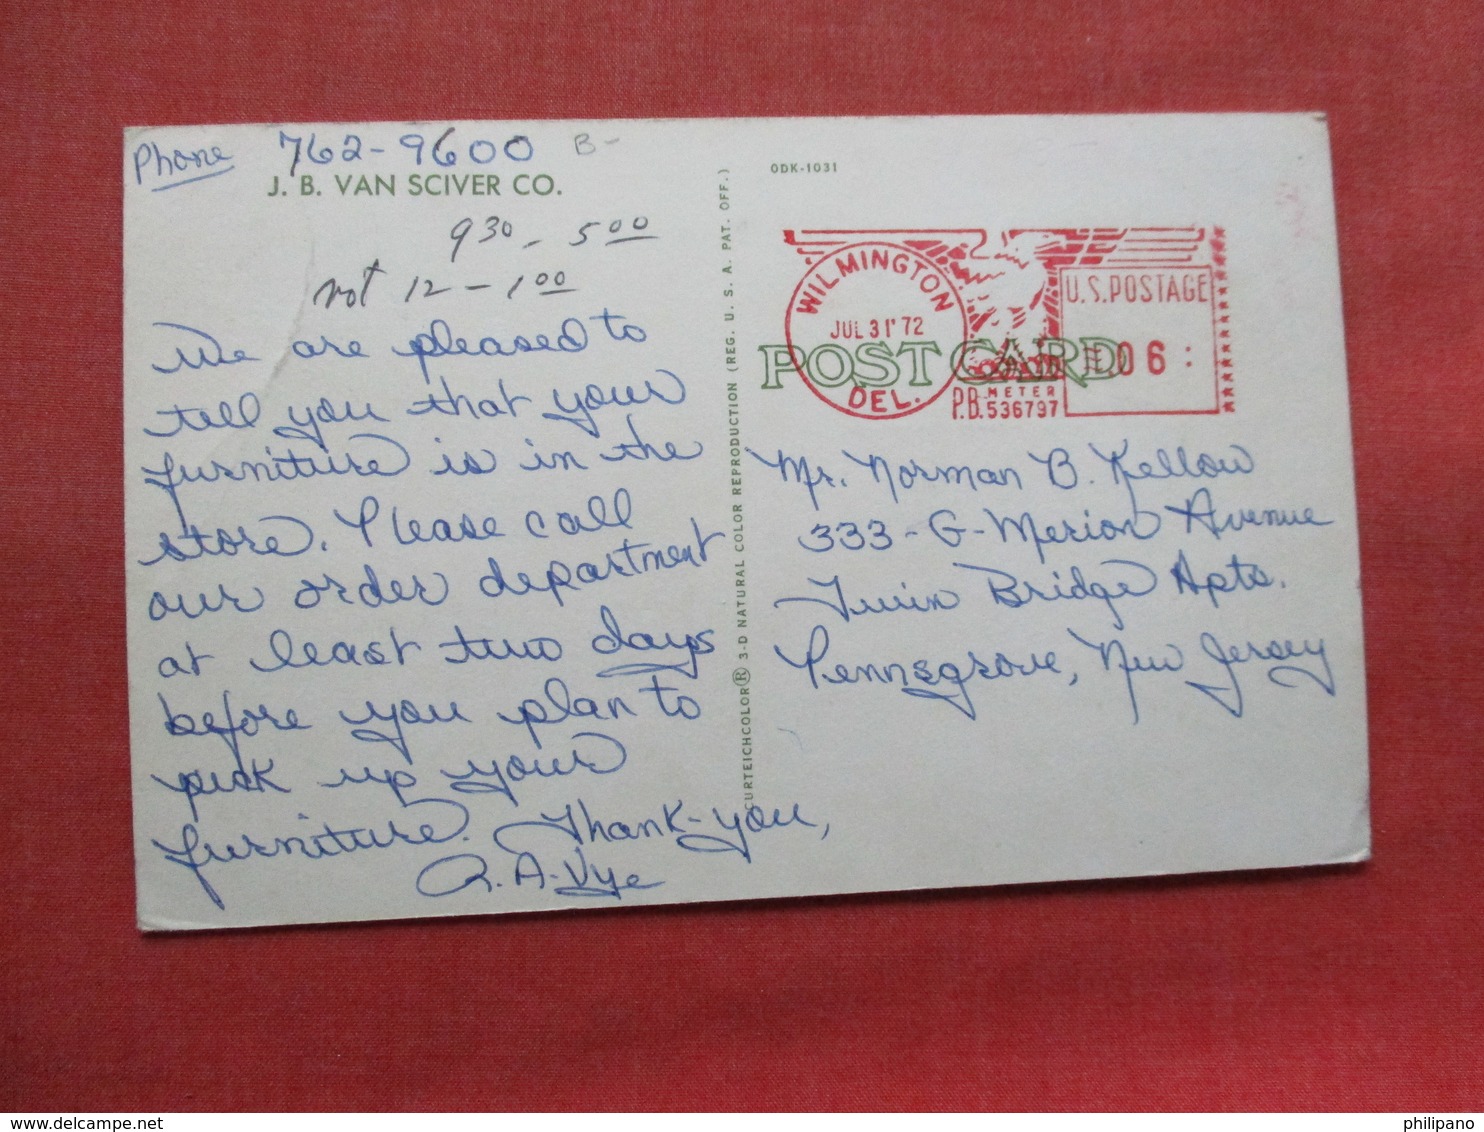 Phone 762-9600 B-
J. B. VAN SCIVER CO.
9 30 - 5 00
not 12 - 1 00
We are pleased to
tell you that your
furniture is in the
store. Please call
our order department
at least two days
before you plan to
pick up your
furniture. Thank-you,
A. A. Vye
CURTEICHCOLOR® 3-D NATURAL COLOR REPRODUCTION (REG. U. S. A. PAT. OFF.)
ODK-1031
WILMINGTON
JUL 31 '72
DEL.
P.B. METER
536797
U.S. POSTAGE
.06
POST CARD
Mr. Norman B. Kellow
333-G-Merion Avenue
Twin Bridge Apts.
Pennsgrove, New Jersey
delcampe.net
philipano